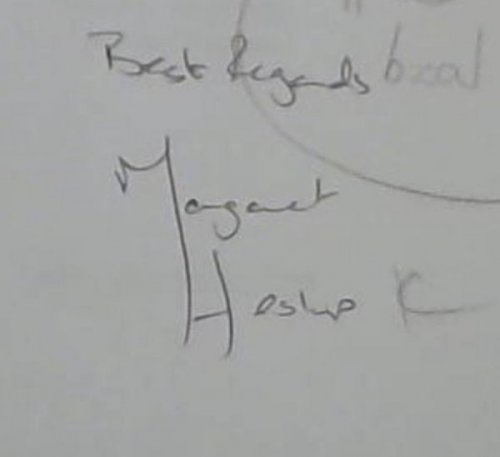 Best Regards
Margaret
Heslip